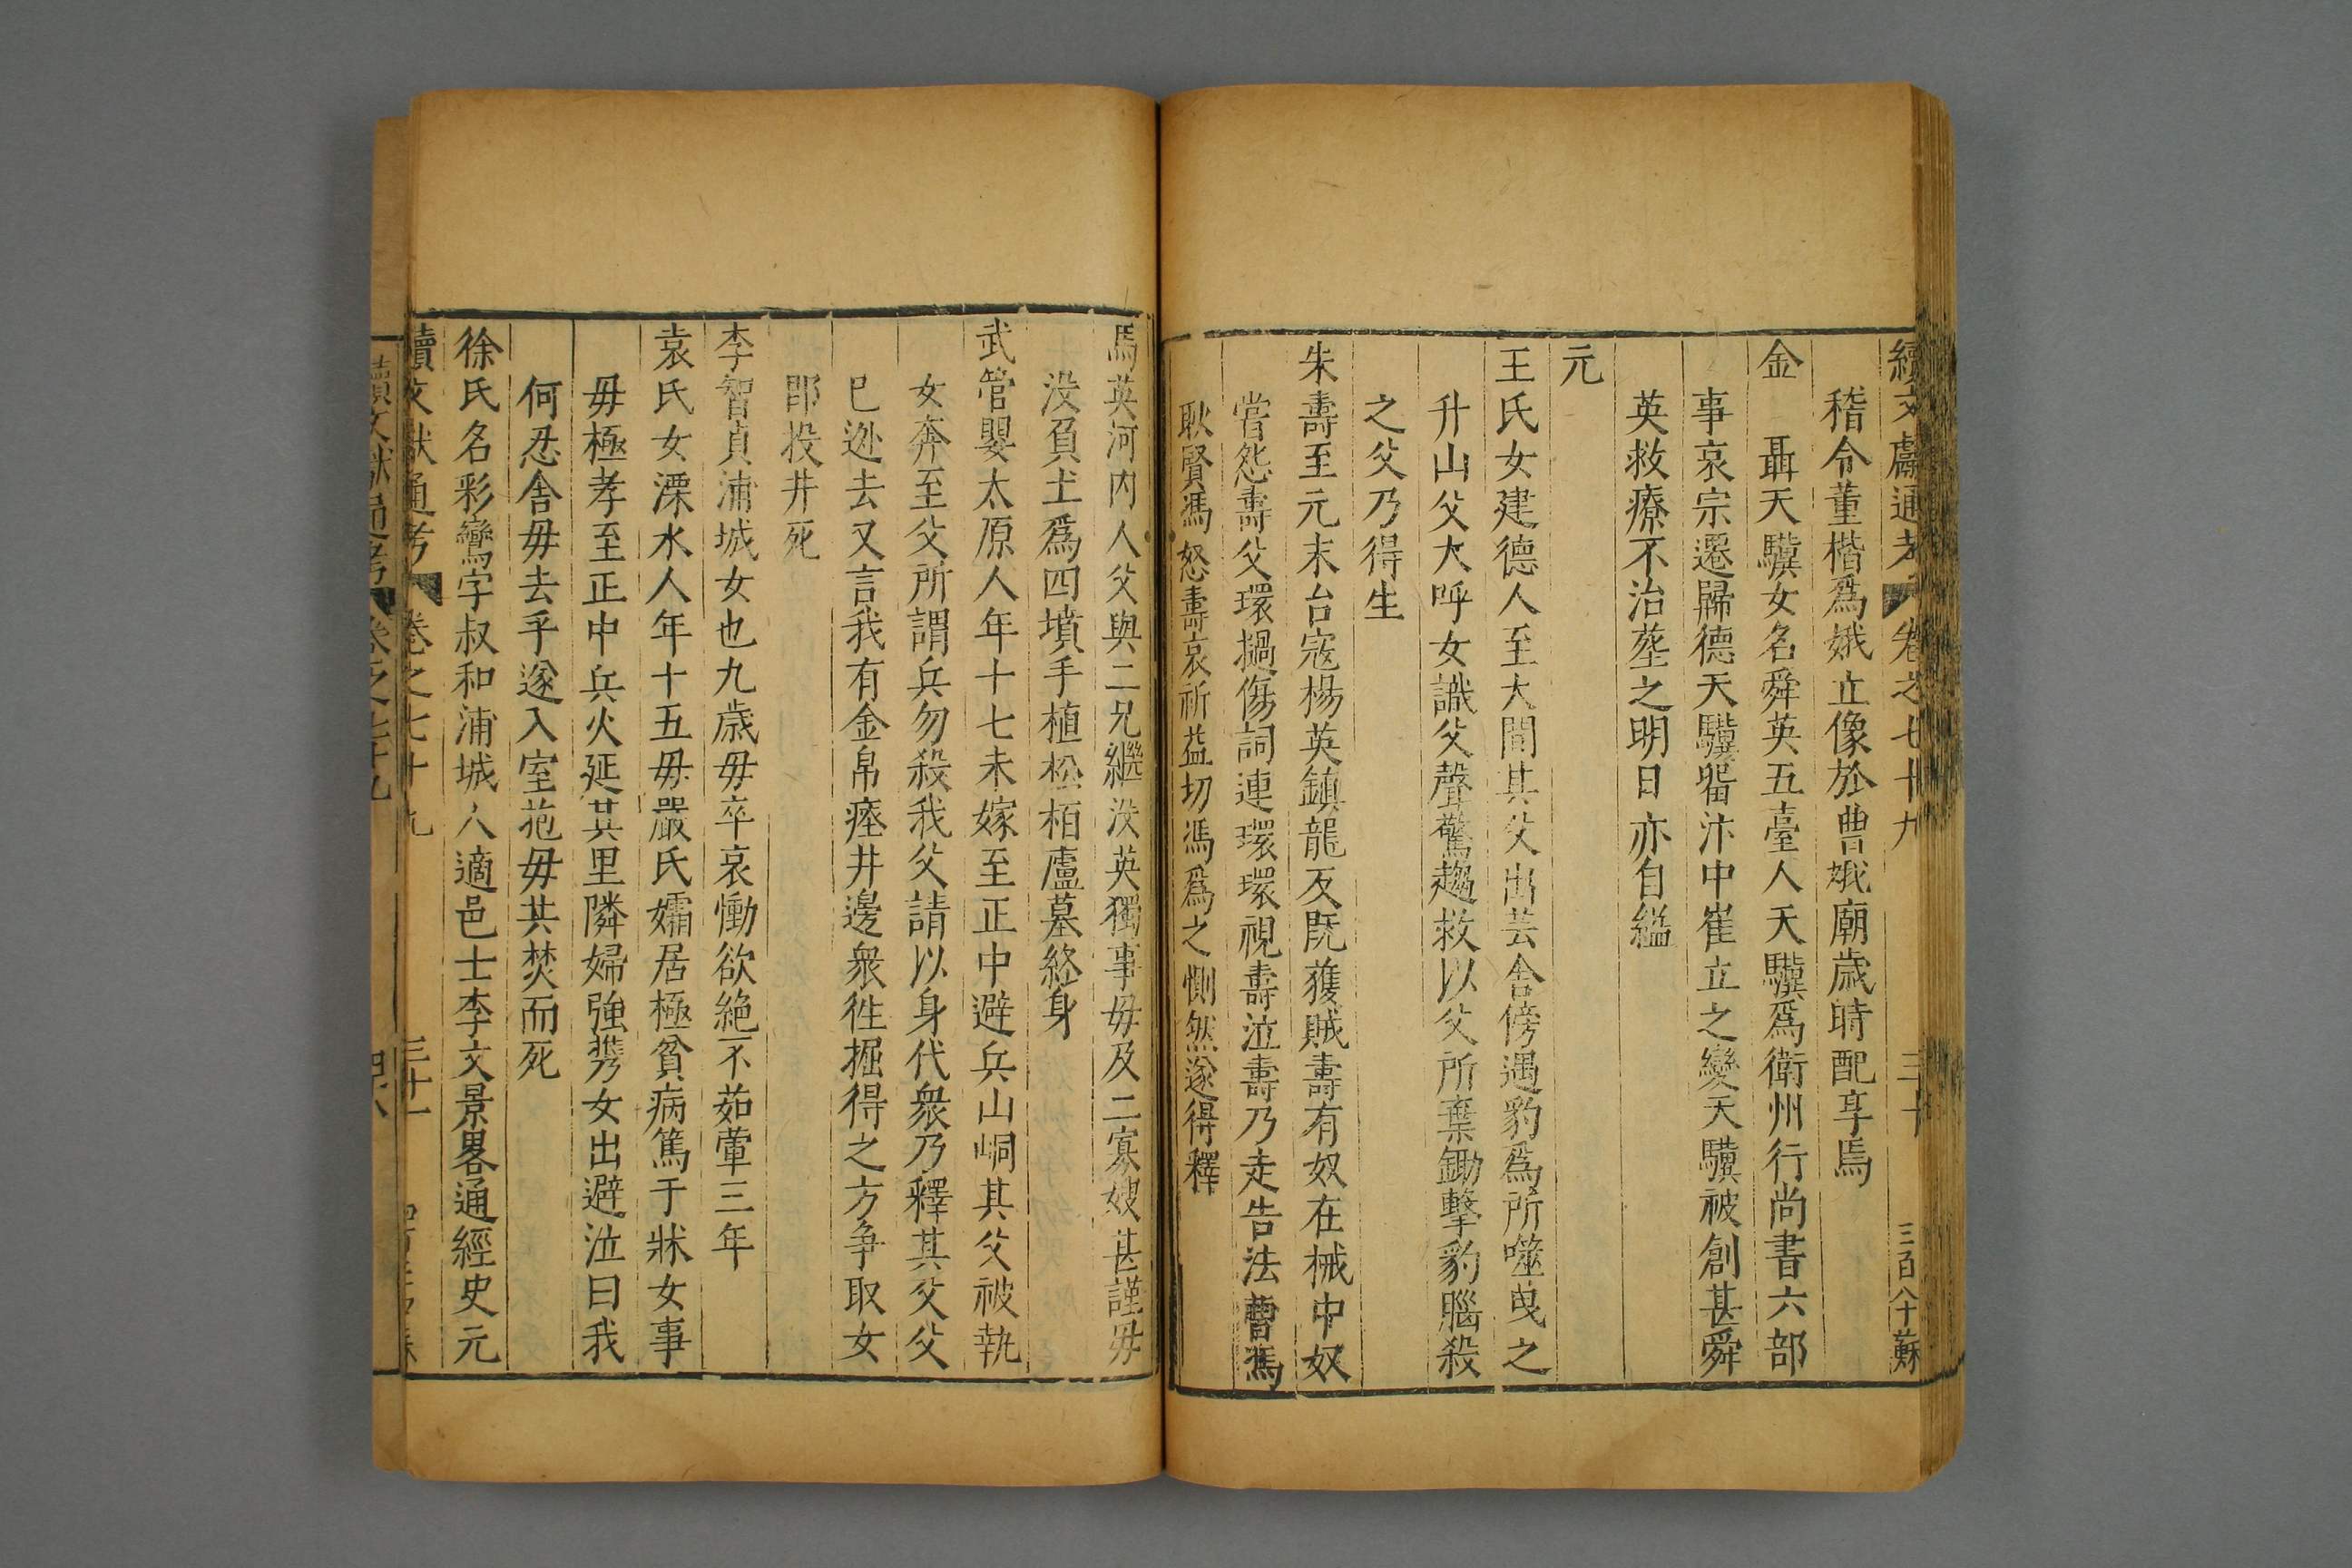 續文獻通考 卷之七十九 三十 三百八十蘇
稽令董楷爲娥立像於曹娥廟歲時配享焉
金 聶天驥女名舜英五臺人天驥爲衛州行尚書六部
事哀宗遷歸德天驥畱汴中崔立之變天驥被創甚舜
英救療不治塟之明日亦自縊
元
王氏女建德人至大間其父出芸舍傍遇豹爲所噬曳之
升山父大呼女識父聲驚趨救以父所棄鋤擊豹腦殺
之父乃得生
朱壽至元末台寇楊英鎮龍反既獲賊壽有奴在械中奴
嘗怨壽父環撾傷詞連環環視壽泣壽乃走告法曹馮
耿賢馮怒壽哀祈益切馮爲之惻然遂得釋
馬英河内人父與二兄繼沒英獨事毋及二寡嫂甚謹毋
没負土爲四墳手植松柏廬墓終身
武管嬰太原人年十七未嫁至正中避兵山峒其父被執
女奔至父所謂兵勿殺我父請以身代衆乃釋其父父
巳逊去又言我有金帛瘞井邊衆徃掘得之方争取女
即投井死
李智貞浦城女也九歲毋卒哀慟欲絶不茹葷三年
袁氏女溧水人年十五毋嚴氏孀居極貧病篤于牀女事
毋極孝至正中兵火延其里隣婦強携女出避泣曰我
何忍舍毋去乎遂入室抱毋共焚而死
徐氏名彩鸞字叔和浦城人適邑士李文景畧通經史元
續文獻通考 卷之七十九 三十一
續文獻通考 卷之七十九